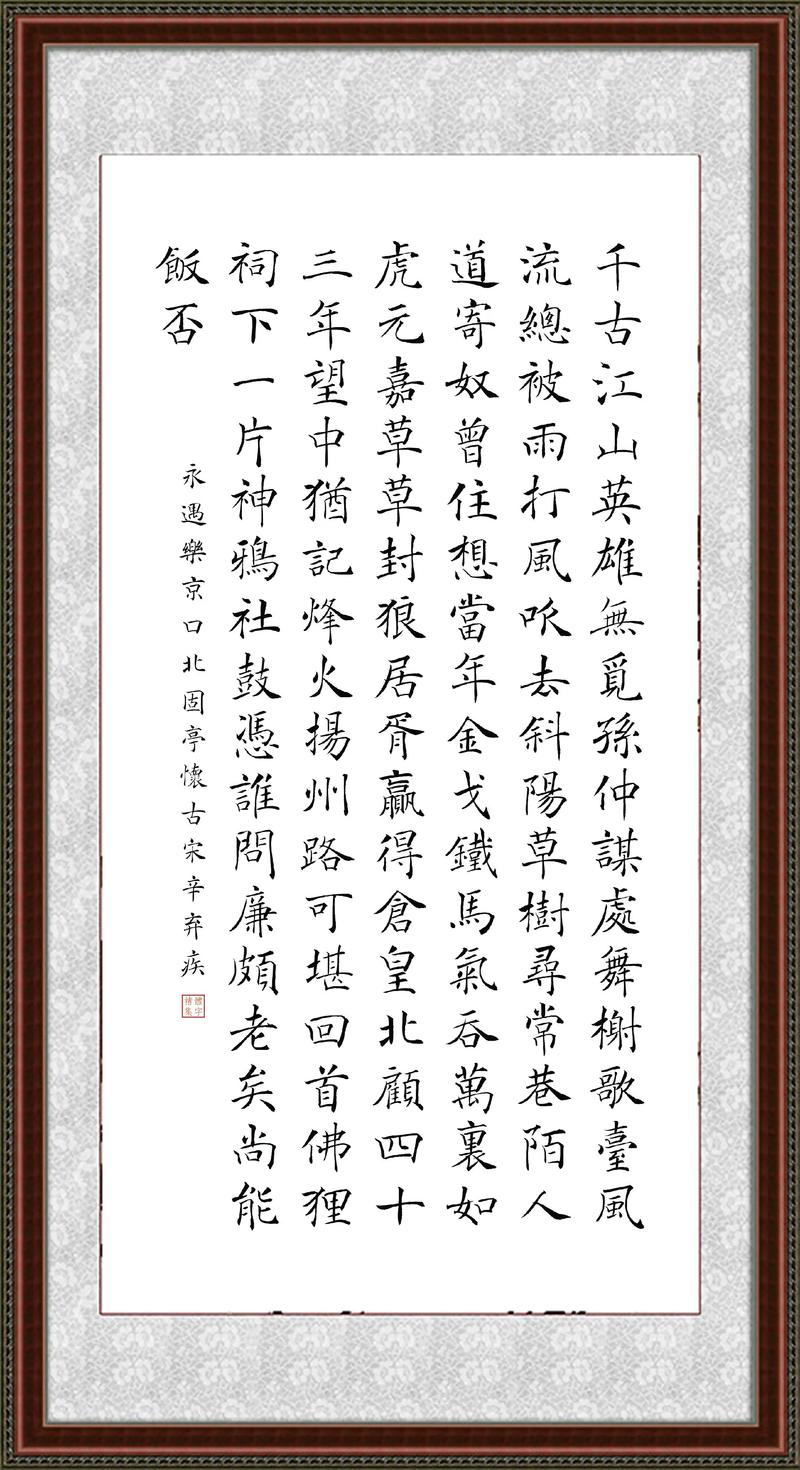 千古江山英雄無覓孫仲謀處舞榭歌臺風
流總被雨打風吹去斜陽草樹尋常巷陌人
道寄奴曾住想當年金戈鐵馬氣吞萬裏如
虎元嘉草草封狼居胥贏得倉皇北顧四十
三年望中猶記烽火揚州路可堪回首佛狸
祠下一片神鴉社鼓憑誰問廉頗老矣尚能
飯否
永遇樂京口北固亭懷古宋辛弃疾